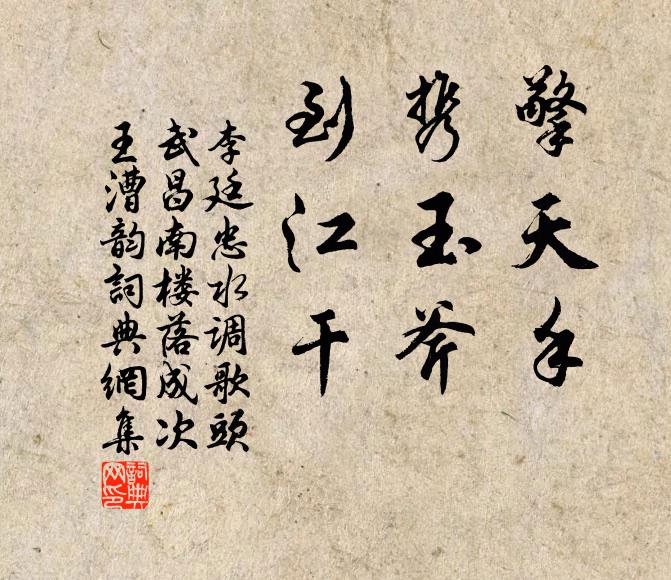 擎天手
携玉斧
到江干
李廷忠水调歌頭
武昌南楼落成次
王漕韵詞典網集
詞典网印